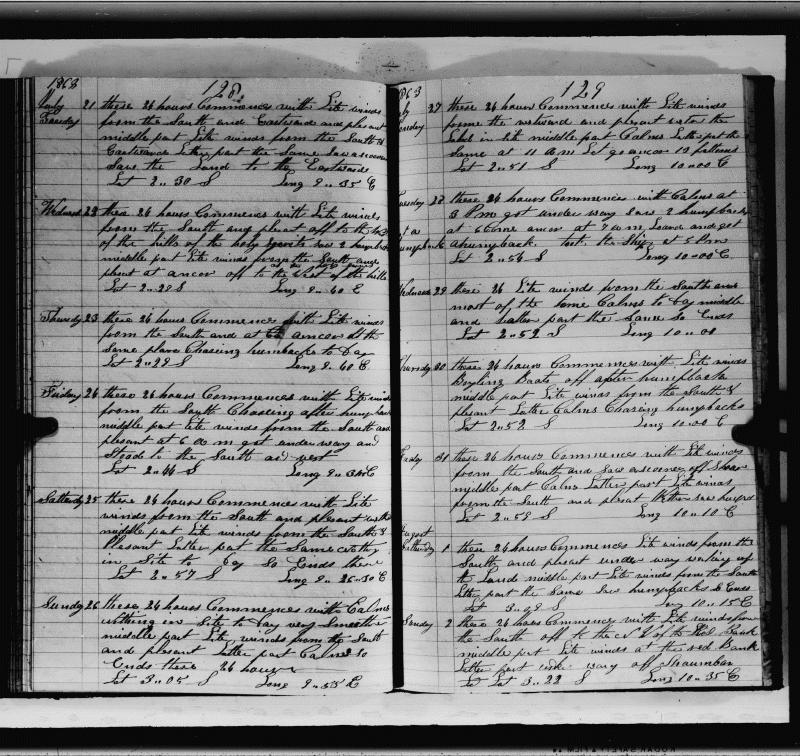 1863
128
July
Tuesday 21 these 24 hours Commences with Lite winds
from the South and Eastward and plesant
middle part Lite winds from the South &
Eastward Latter part the Same
Saw the Land to the Eastward
Lat 2..30 S Long 9..35 E
Wednesd 22 these 24 hours Commences with Lite winds
from the South and plesant off to the
of the hills of the saw 2 humpbacks
middle part Lite winds from the South and
plesant at ancor off to the West of the hills
Lat 2..28 S Long 9..40 E
Thursdy 23 these 24 hours Commences with Lite winds
from the South and at ancor at the
Same place Chaseing humbacks to Day
Lat 2..28 S Long 9..40 E
Friday 24 these 24 hours Commences with Lite winds
from the South Chaseing after humpbacks
middle part Lite winds from the South and
plesant at 6 a m got under way and
Stood to the South and west
Lat 2..44 S Long 9..34 E
Satterdy 25 these 24 hours Commences with Lite
winds from the South and plesant
middle part Lite winds from the South &
Plesant Latter part the Same nothing
in Site to Day So Ends these
Lat 2..57 S Long 9..26..30 E
Sundy 26 these 24 hours Commences with Calms
nothing in Site to Day very Smoothe
middle part Lite winds from the South
and plesant Latter part Calms So
Ends these 24 hours
Lat 3..05 S Long 9..55 E
1863
129
July 27 these 24 hours Commences with Lite winds
from the westward and plesant
Land in Site middle part Calms Latter part the
Same at 11 a m Let go ancor 13 fathoms
Lat 2..51 S Long 10..00 E
Tuesday 28 these 24 hours Commences with Calms at
3 P m got under way Saw 2 humpbacks
at 6 Come ancor at 7 a m Lowerd and got
a humpback took the Ship at 5 Pm
Lat 2..54 S Long 10..00 E
Wednesd 29 these 24 Lite winds from the South and
most of the time Calms to Day middle
and Latter part the Same So Ends
Lat 2..52 S Long 10..00
Thursdy 30 these 24 hours Commences with Lite winds
Boyling Boats off after humpbacks
middle part Lite winds from the South &
plesant Latter Calms Chaseing humpbacks
Lat 2..52 S Long 10..00 E
Friday 31 these 24 hours Commences with Lite winds
from the South and Saw a scooner off Shore
middle part Calms Latter part Lite winds
from the South and plesant
Lat 2..59 S Long 10..10 E
August
Satterday 1 these 24 hours Commences Lite winds from the
South and plesant under way working up
to Land middle part Lite winds from the South
Latter part the Same Saw humpbacks So Ends
Lat 3..08 S Long 10..15 E
Sunday 2 these 24 hours Commences with Lite winds from
the South off to the of the Red Bank
middle part Lite winds at the red Bank
Latter part under way off
Lat 3..22 S Long 10..35 E